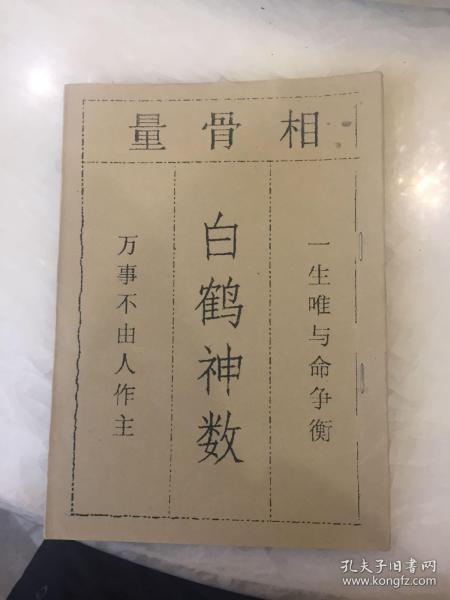 相骨量
一生唯与命争衡
白鹤神数
万事不由人作主
孔夫子旧书网
www.kongfz.com